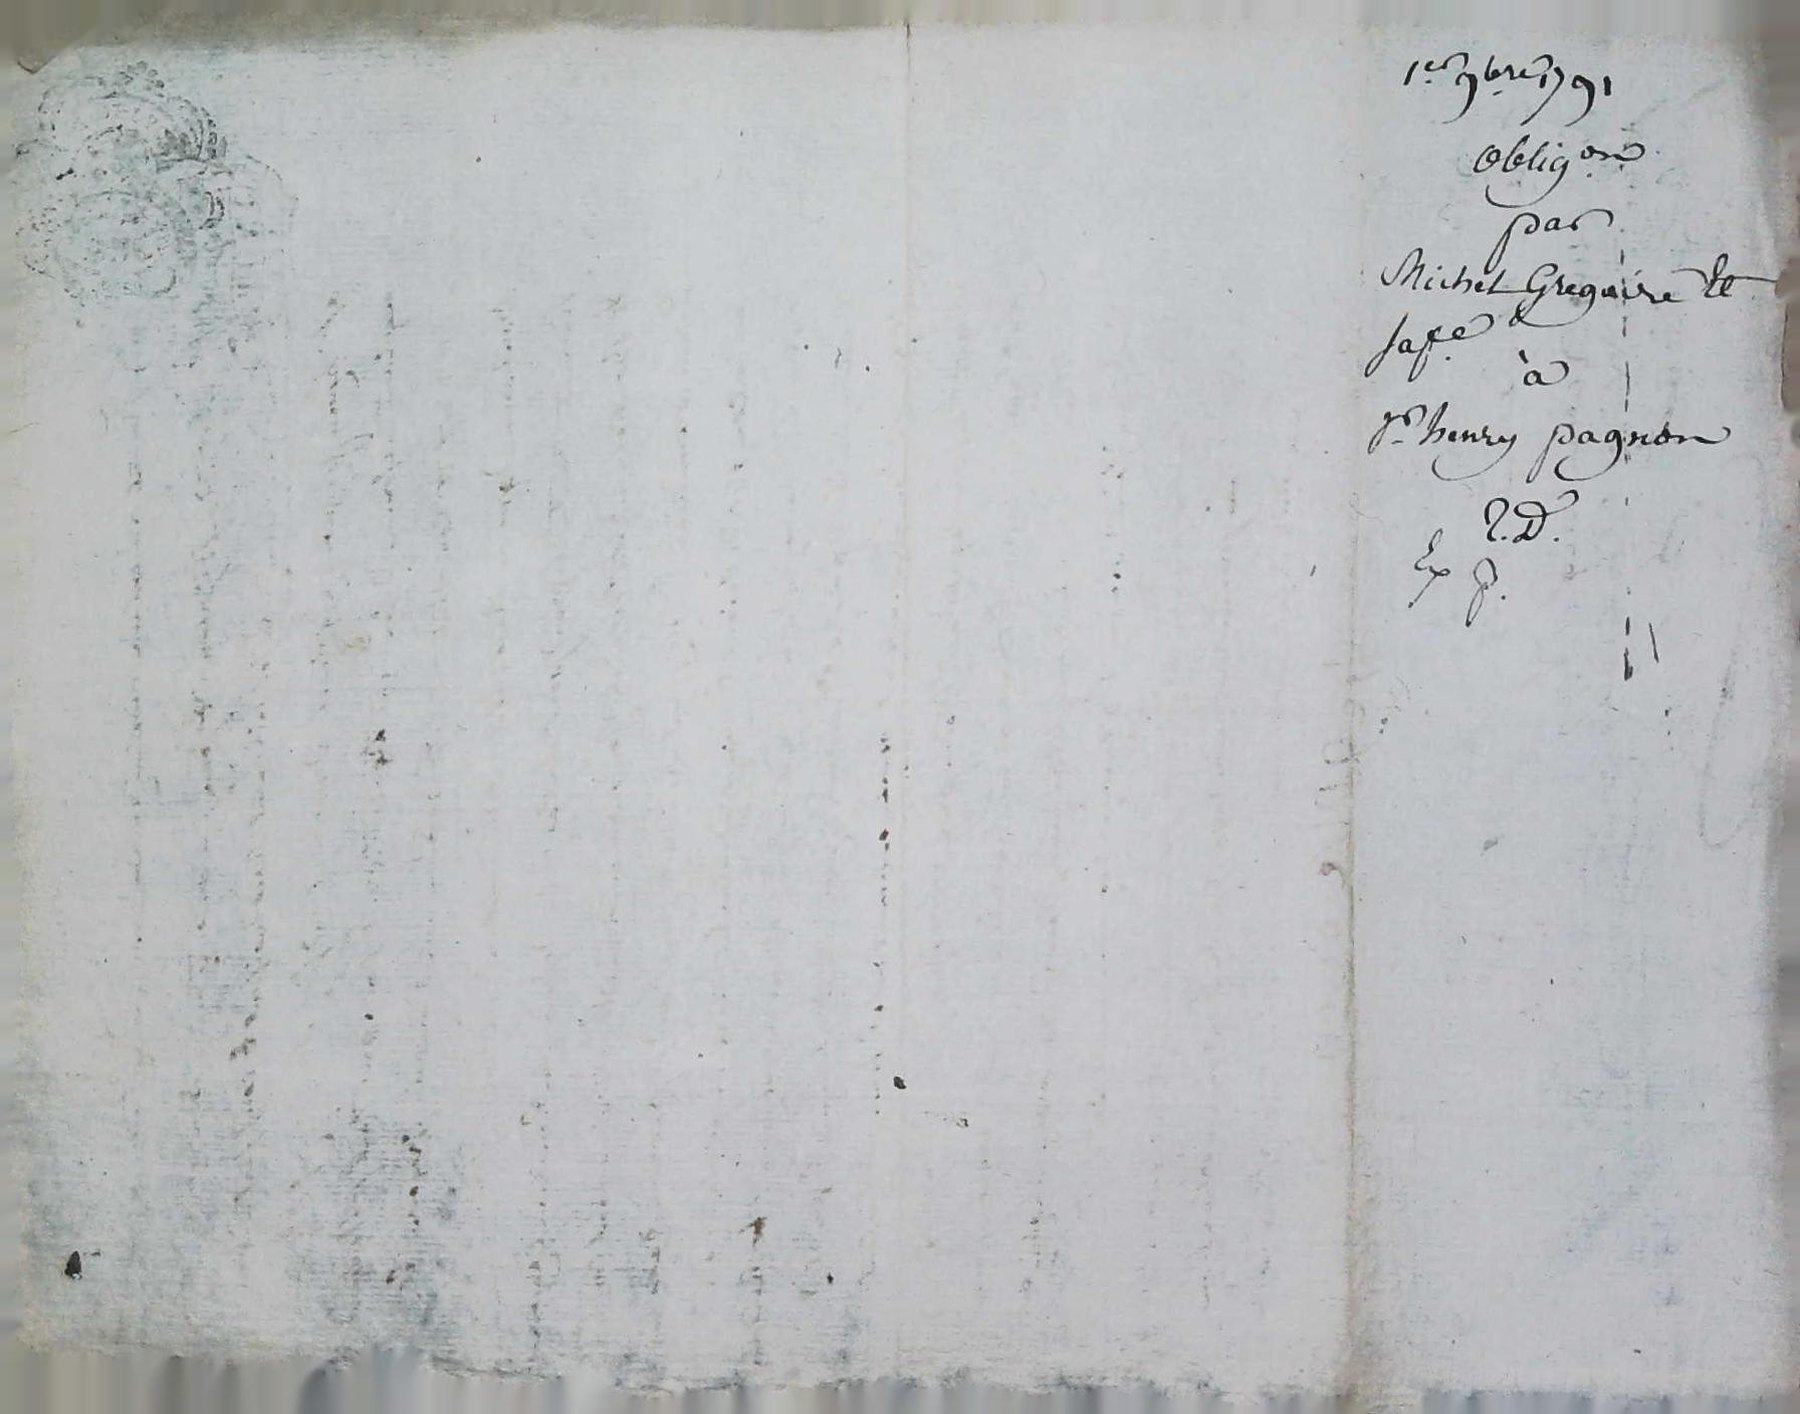 1er 9bre 1791
obligon
par
Michel Gregoire et
sa fe
à
Sr henry pagnon
R.D.
Ex p.